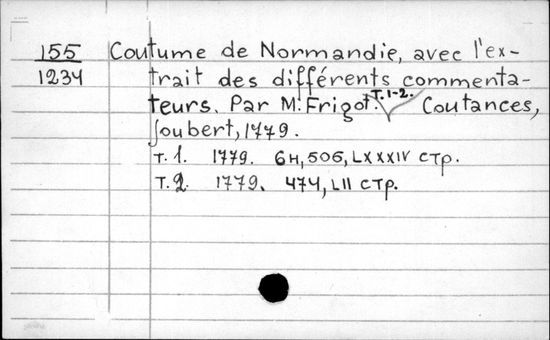 155 Coutume de Normandie, avec l'ex-
1234 trait des différents commenta-
teurs. Par M. Frigot. T. 1-2. Coutances,
Joubert, 1779.
Т. 1. 1779. 6н, 506, LXXXIV стр.
Т. 2. 1779. 474, LII стр.